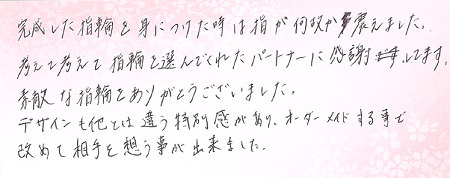 完成した指輪を身につけた時は指が何故か震えました。
考えて考えて指輪を選んでくれたパートナーに感謝してます。
素敵な指輪をありがとうございました。
デザインも他とは違う特別感があり、オーダーメイドする事で
改めて相手を想う事が出来ました。